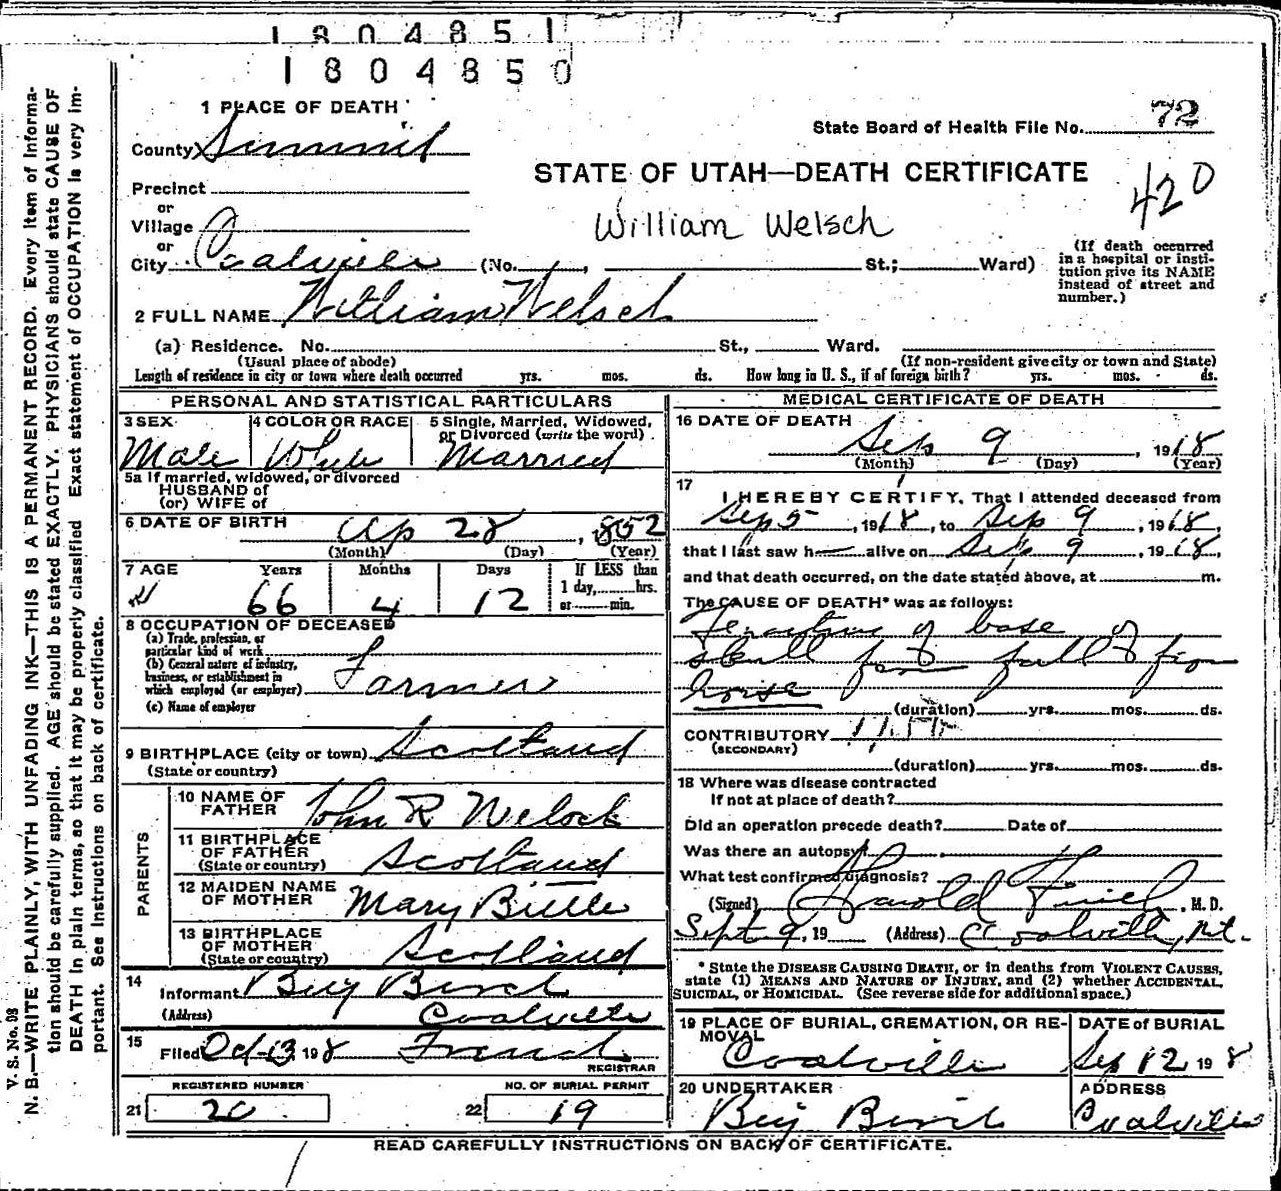 1804851
1804850
1 PLACE OF DEATH
County Summit
State Board of Health File No. 72
STATE OF UTAH—DEATH CERTIFICATE
420
Precinct
or
Village
William Welsch
or
City Coalville (No. , St.; Ward)
(If death occurred in a hospital or institution give its NAME instead of street and number.)
2 FULL NAME William Welsch
(a) Residence. No. St., Ward.
(Usual place of abode) (If non-resident give city or town and State)
Length of residence in city or town where death occurred yrs. mos. ds. How long in U. S., if of foreign birth? yrs. mos. ds.
PERSONAL AND STATISTICAL PARTICULARS
3 SEX
Male
4 COLOR OR RACE
White
5 Single, Married, Widowed,
or Divorced (write the word)
Married
5a If married, widowed, or divorced
HUSBAND of
(or) WIFE of
6 DATE OF BIRTH Ap 28, 1852
(Month) (Day) (Year)
7 AGE Years Months Days
66 4 12
If LESS than
1 day, hrs.
or min.
8 OCCUPATION OF DECEASED
(a) Trade, profession, or
particular kind of work
(b) General nature of industry,
business, or establishment in
which employed (or employer) Farmer
(c) Name of employer
9 BIRTHPLACE (city or town) Scotland
(State or country)
PARENTS
10 NAME OF
FATHER John R
11 BIRTHPLACE
OF FATHER
(State or country) Scotland
12 MAIDEN NAME
OF MOTHER Mary
13 BIRTHPLACE
OF MOTHER
(State or country) Scotland
14
Informant
(Address) Coalville
15
Filed Oct 13 1918
REGISTRAR
REGISTERED NUMBER
21 20
NO. OF BURIAL PERMIT
22 19
MEDICAL CERTIFICATE OF DEATH
16 DATE OF DEATH
Sep 9, 1918
(Month) (Day) (Year)
17
I HEREBY CERTIFY, That I attended deceased from
Sep 5, 1918, to Sep 9, 1918,
that I last saw h— alive on Sep 9, 1918,
and that death occurred, on the date stated above, at m.
The CAUSE OF DEATH* was as follows:
Fracture of base of
skull from fall from
horse
(duration) yrs. mos. ds.
CONTRIBUTORY
(SECONDARY)
(duration) yrs. mos. ds.
18 Where was disease contracted
If not at place of death?
Did an operation precede death? Date of
Was there an autopsy?
What test confirmed diagnosis?
(Signed) Harold , M. D.
Sept 9, 19 (Address) Coalville, Ut.
* State the DISEASE CAUSING DEATH, or in deaths from VIOLENT CAUSES,
state (1) MEANS AND NATURE OF INJURY, and (2) whether ACCIDENTAL,
SUICIDAL, or HOMICIDAL. (See reverse side for additional space.)
19 PLACE OF BURIAL, CREMATION, OR RE-
MOVAL
Coalville
DATE of BURIAL
Sep 12 1918
20 UNDERTAKER
ADDRESS
Coalville
READ CAREFULLY INSTRUCTIONS ON BACK OF CERTIFICATE.
V. S. No. 98
N. B.—WRITE PLAINLY, WITH UNFADING INK—THIS IS A PERMANENT RECORD. Every item of informa-
tion should be carefully supplied. AGE should be stated EXACTLY. PHYSICIANS should state CAUSE OF
DEATH in plain terms, so that it may be properly classified. Exact statement of OCCUPATION is very im-
portant. See instructions on back of certificate.